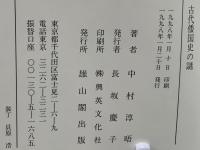 古代倭国史の謎
一九九八年一月一〇日 印刷
一九九八年一月二〇日 発行
著者 中村淳晤
発行者 長坂慶子
印刷所 ㈱興英文化社
発行所 雄山閣出版
東京都千代田区富士見二―六―九
電話東京 三二六二―三二三一
振替口座 〇〇一三〇―五―一六八五
装丁 貝原 浩